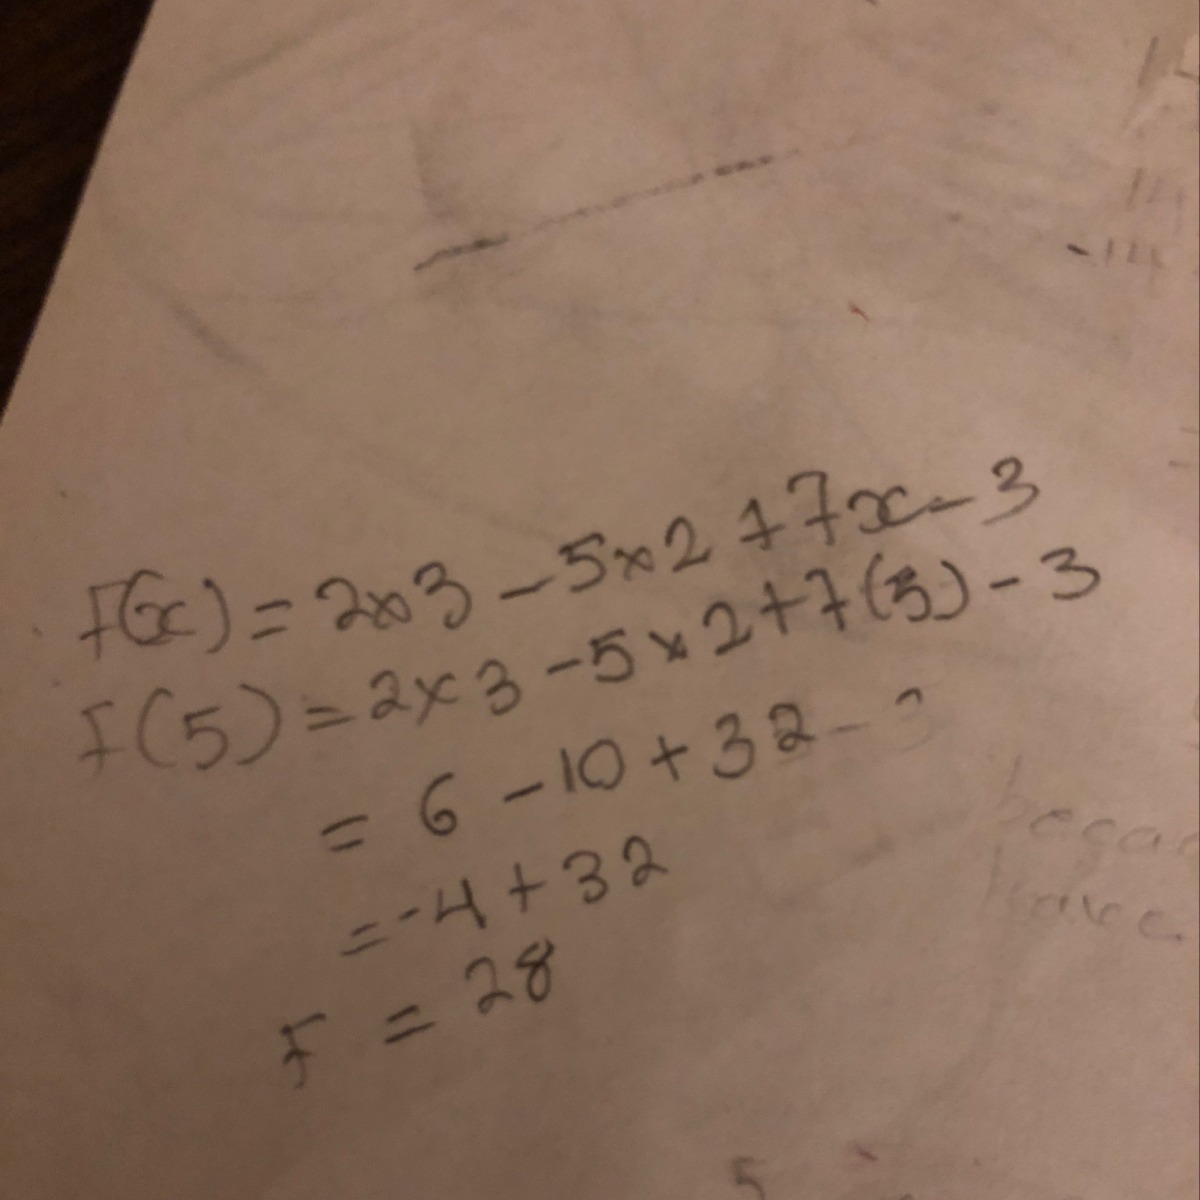 14
14
-14
f(x) = 2x3 - 5x2 + 7x - 3
f(5) = 2x3 - 5x2 + 7(5) - 3
= 6 - 10 + 32 - 3
= -4 + 32
F = 28
have
5